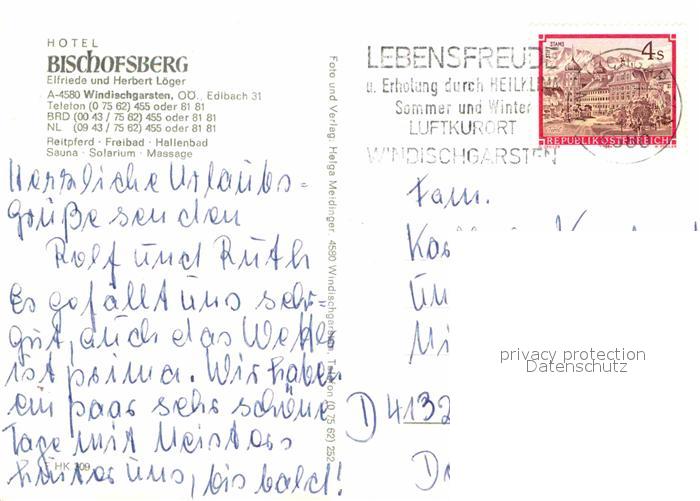 HOTEL
BISCHOFSBERG
Elfriede und Herbert Löger
A-4580 Windischgarsten, OÖ., Edlbach 31
Telefon (0 75 62) 455 oder 81 81
BRD (00 43 / 75 62) 455 oder 81 81
NL (09 43 / 75 62) 455 oder 81 81
Reitpferd · Freibad · Hallenbad
Sauna · Solarium · Massage
Herzliche Urlaubs=
Grüße senden
Rolf und Ruth
Es gefällt uns sehr=
gut, auch das Wetter
ist prima. Wir haben
ein paar sehr schöne
Tage mit Meistos
hinter uns, bis bald!
HK 209
Foto und Verlag: Helga Meidinger, 4580 Windischgarsten, Telefon (0 75 62) 252
LEBENSFREUDE
u. Erholung durch HEILKLIMA
Sommer und Winter
LUFTKURORT
WINDISCHGARSTEN
STAMS
4 S
REPUBLIK ÖSTERREICH
Fam.
Ka
Un
Mi
D 4132
privacy protection
Datenschutz